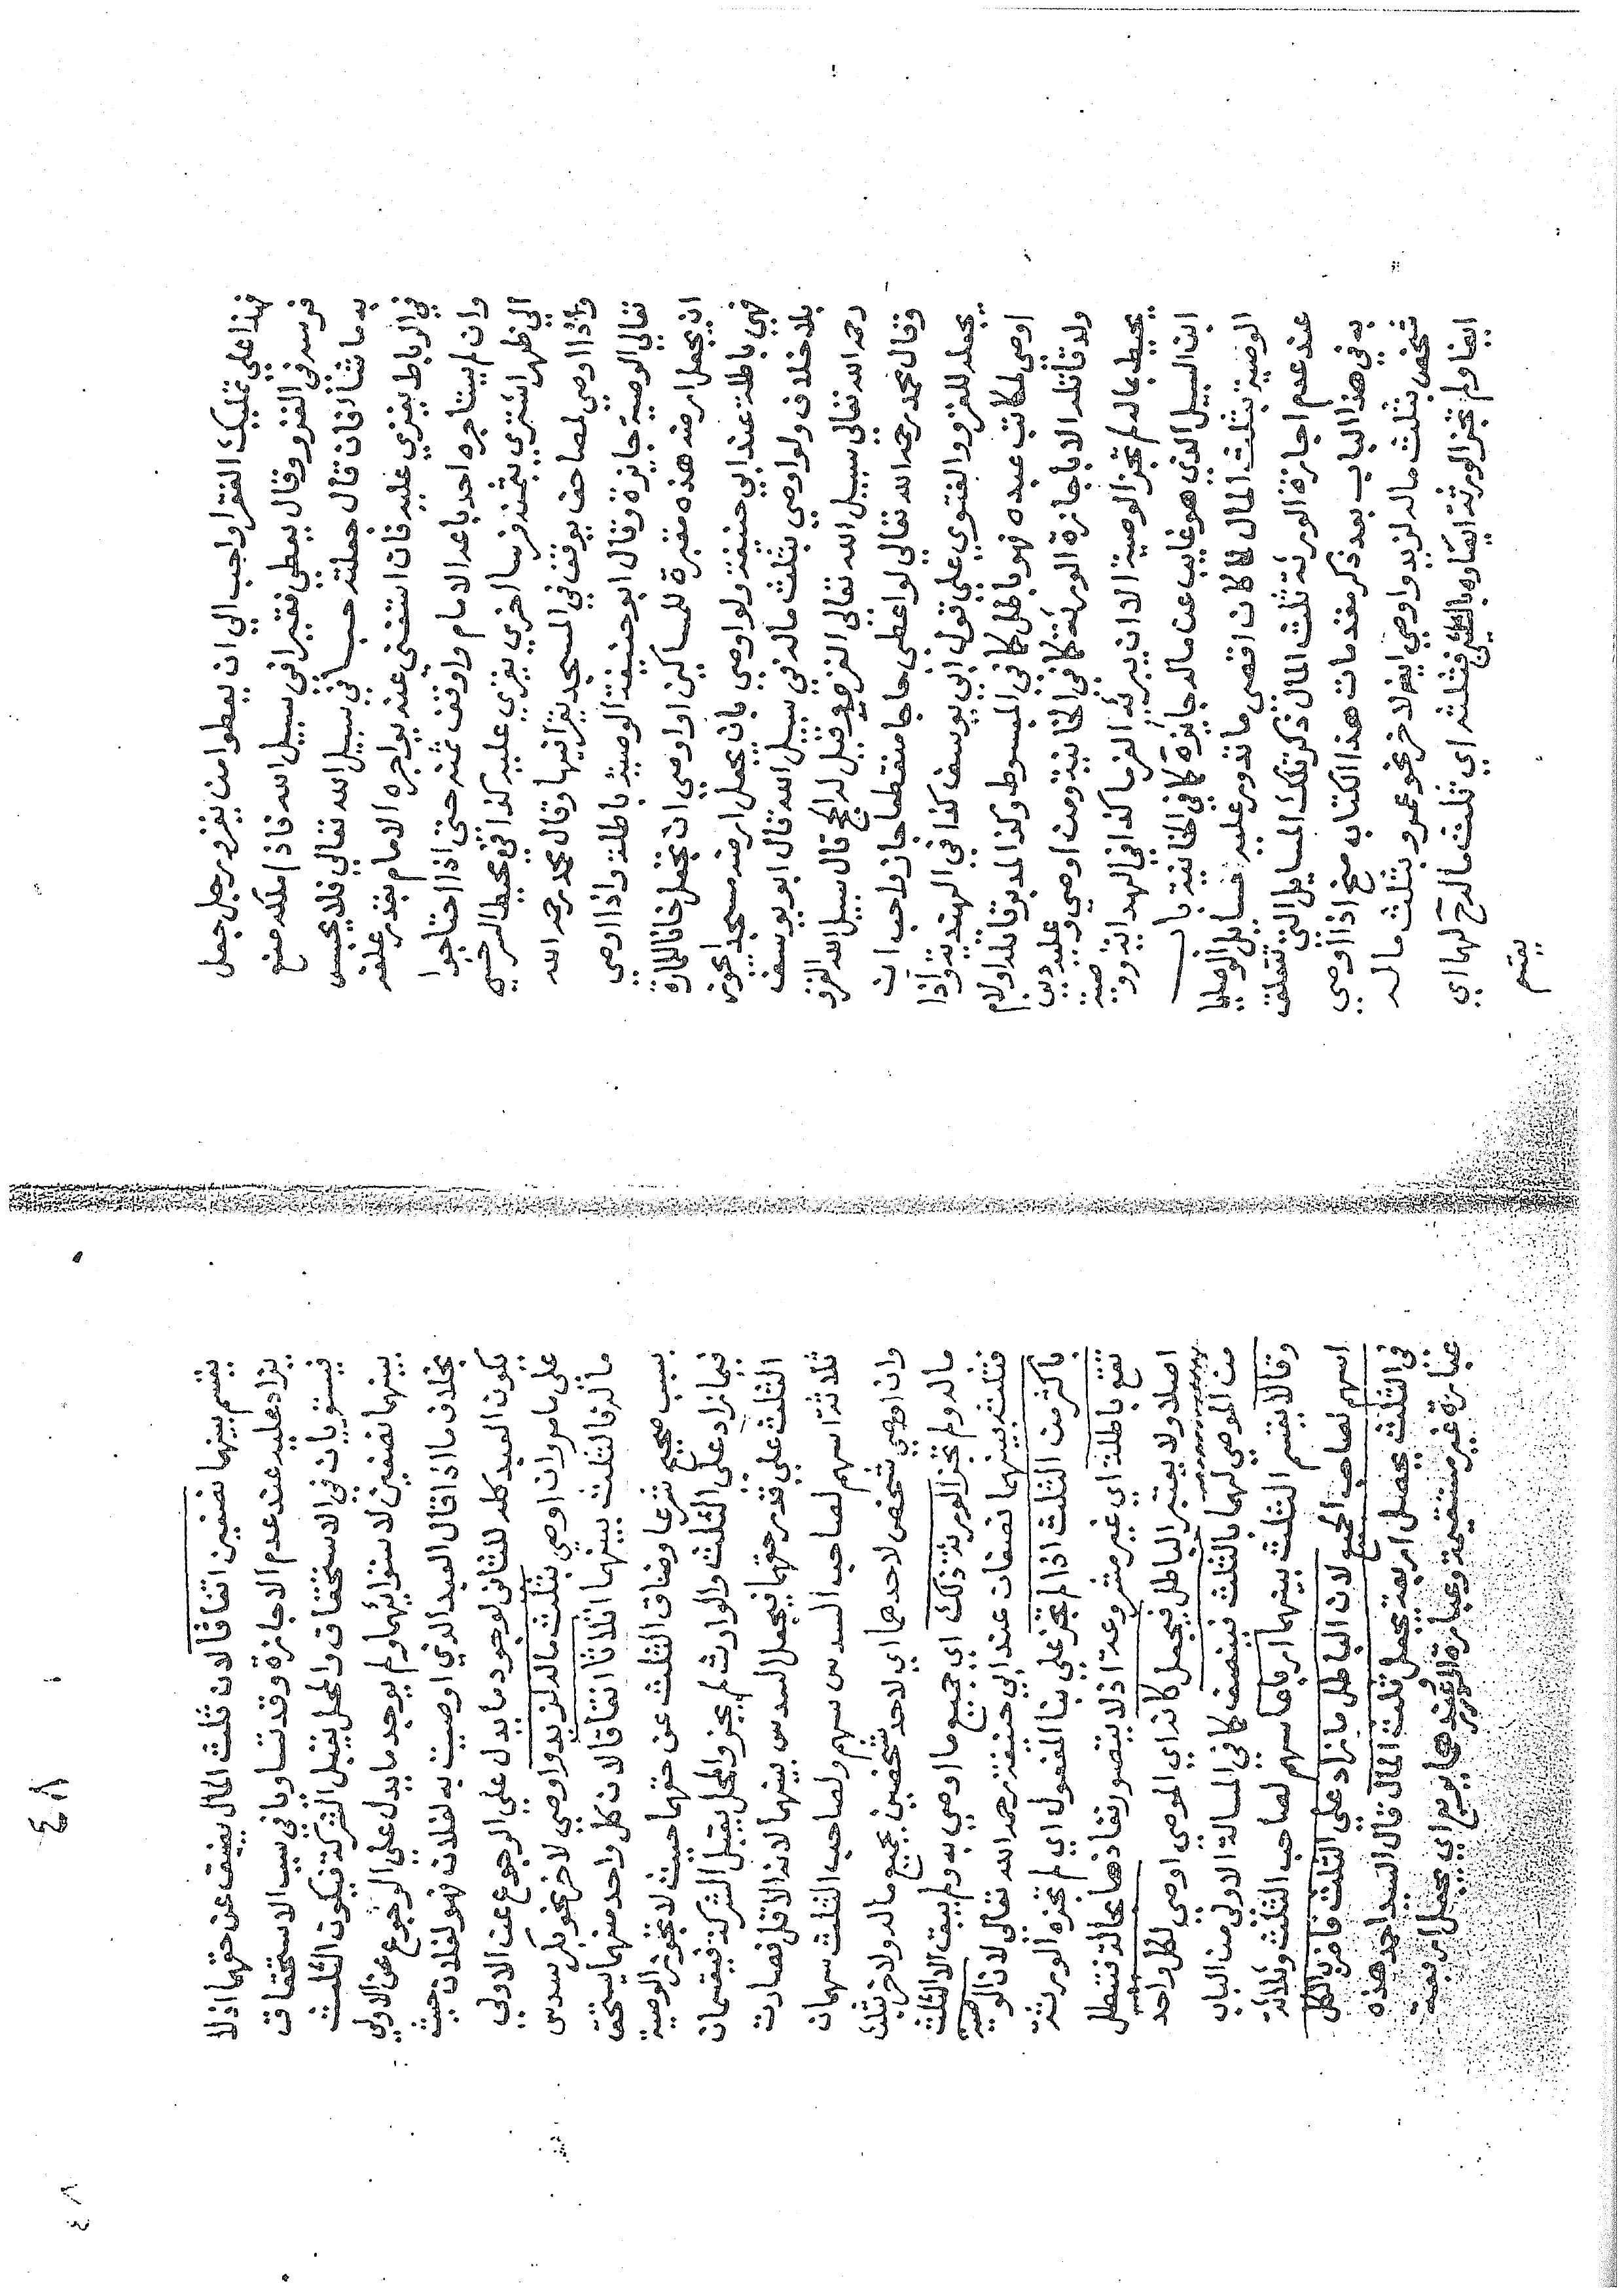 فهذا علي تمليك الفقرا واجب الي ان يعطوا من يغزو رجل جعل
فرسه في الغزو وقال يعطي فقيرا في سبيل الله فاذا ملكه صنع
به ما شأ فان قال جعلته حبسا في سبيل الله تعالي فلا يحبس
في الرباط يغزي عليه فان استغني عنه يواجره الامام بقدر علفه
وان لم يستاجره احد باعه الامام واوقف ثمنه حتي اذا احتاجوا
الي ظهر اشتري بثمنه فرسا اخري يغزي عليه كذا في محيط السرخسي
واذا اوصي لمصاحف يوقف في المسجد يقرأ فيها وقال محمد رحمه الله
تعالي الوصية جايزة وقال ابو حنيفة الوصية باطلة واذا اوصي
ان يجعل ارضه هذه مقبرة للمساكين او اوصي ان تجعل خانا للمارة
فهي باطلة عند ابي حنيفة ولو اوصي بان يجعل ارضه مسجدا يجوز
بلا خلاف ولو اوصي بثلث ماله في سبيل الله قال ابو يوسف
رحمه الله تعالي سبيل الله تعالي الغزو قيل له الحج قال سبيل الله الغزو
وقال محمد رحمه الله تعالي لو اعطي حاجا منقطعا جاز واحب ان
يجعله للغزو والفتوي علي قول ابي يوسف كذا في الهندية واذا
اوصي لمكاتب عبده فهو باطل كما في المبسوط وكذا لمدبر قاتله او لام
ولد قاتله الا باجازة الورثة كما في الخانية ومن اوصي وعليه دين
يحيط بماله لم تجز الوصية الا ان يبريه الغرما كذا في الهداية ووصية
ابن السبيل الذي هو غايب عن ماله جايزة كما في الخانية باب
الوصية بثلث المال لما كان اقصي ما تدور عليه مسايل الوصايا
عند عدم اجازة الورثة ثلث المال ذكر تلك المسايل التي تتعلق
به في هذا الباب بعد ذكر مقدمات هذا الكتاب منح اذا اوصي
شخص بثلث ماله لزيد واوصي ايضا لاخر نحو عمرو بثلث ماله
ايضا ولم تجز الورثة ايصاوه بالثلثين فثلثه اي ثلث ماله ح لهما اي
يقسم
يقسم بينهما نصفين اتفاقا لان ثلث المال يضيق عن حقهما اذ لا
يزاد عليه عند عدم الاجازة وقد تساويا في سبب الاستحقاق
فيستويان في الاستحقاق والمحل يقبل الشركة فيكون الثلث
بينهما نصفين لاستوايهما ولم يوجد ما يدل علي الرجوع عن الاولي
بخلاف ما اذا قال العبد الذي اوصيت به لفلان فهو لفلان حيث
يكون العبد كله للثاني لوجود ما يدل علي الرجوع عن الاولي
علي ما مر وان اوصي بثلث ماله لزيد واوصي لاخر نحو بكر بسدس
ماله فالثلث بينهما اثلاثا اتفاقا لان كل واحد منهما يستحق
بسبب صحيح شرعا وضاق الثلث عن حقهما حيث لا تجوز الوصية
فيما زاد علي الثلث والوارث لم يجز والمحل يقبل الشركة فيقسمان
الثلث علي قدر حقهما فيجعل السدس بينهما لانه الاقل فصارت
ثلاثة اسهم لصاحب السدس سهم ولصاحب الثلث سهمان
وان اوصي شخص لاحدهما اي لاحد شخصين بجميع ماله ولاخر بثلث
ماله ولم تجز الورثة ذلك اي جميع ما اوصي به ولم يبق الا الثلث
فثلثه بينهما نصفان عند ابي حنيفة رحمه الله تعالي لان الوصية
باكثر من الثلث اذا لم تجز علي بنا المفعول اي لم تجزه الورثة
تقع باطلة اي غير مشروعة اذ لا يتصور نفاذها بحالة فتبطل
اصلا ولا يعتبر الباطل فيجعل كانه اي الموصي اوصي لكل واحد
من الموصي لهما بالثلث فينصف كما في المسالة الاولي من الباب
وقالا يقسم الثلث بينهما ارباعا سهم لصاحب الثلث وثلاثة
اسهم لصاحب الجميع لان الباطل ما زاد علي الثلث فاضرب الكل
في الثلث يحصل اربعة يجعل ثلث المال قال السيد احمد هذه
عبارة غير مستقيمة وعبارة الدرر يجعل اربعة
٤٨